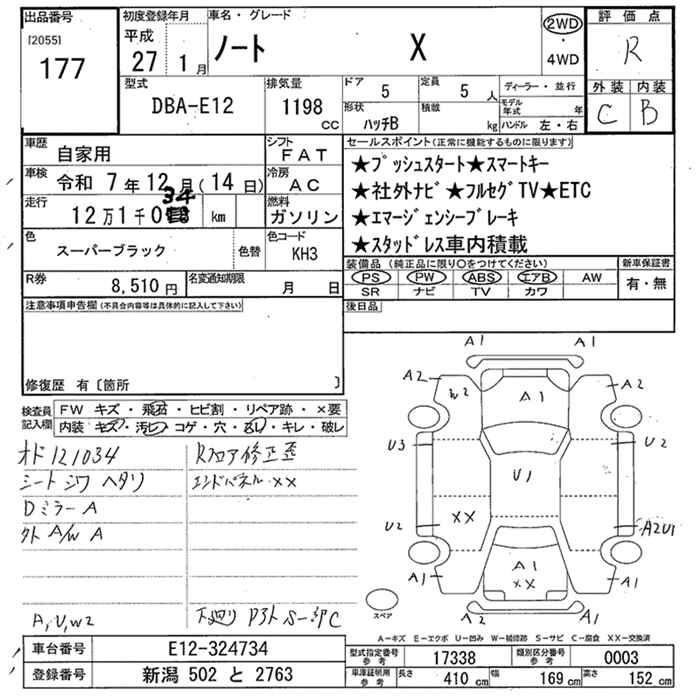 出品番号
[2055]
177
初度登録年月
平成
27 1月
車名・グレード
ノート X
2WD
・
4WD
評価点
R
外装 内装
C B
型式
DBA-E12
排気量
1198 cc
ドア 5
定員 5 人
形状 ハッチB
積載 kg
ディーラー・並行
モデル年式 年
ハンドル 左・右
車歴 自家用
シフト FAT
車検 令和 7年 12月(14日)
冷房 AC
走行 12万1千034 km
燃料 ガソリン
色 スーパーブラック 色替
色コード KH3
R券 8,510円
名変通知期限 月 日
セールスポイント(正常に機能するものに限ります)
★プッシュスタート★スマートキー
★社外ナビ★フルセグTV★ETC
★エマージェンシーブレーキ
★スタッドレス車内積載
装備品(純正品に限り○をつけてください)
PS PW ABS エアB AW
SR ナビ TV カワ
新車保証書
有・無
後日品
注意事項申告欄(不具合内容等は具体的に記入して下さい)
修復歴 有〔箇所 〕
検査員記入欄
FW キズ・飛石・ヒビ割・リペア跡・×要
内装 キズ・汚レ・コゲ・穴・凹レ・キレ・破レ
オド121034
シートシワ ヘタリ
Dミラー A
外 A/W A
A,U,W2
Rフロア修正歪
エンドパネル XX
下廻り Pアト S〜部C
A1 A1
A2 W2 A1 A2
U3 U1 U2
U2 XX A2U1
A1 A1 XX A1
A2 A1
スペア
A-キズ E-エクボ U-凹み W-補修跡 S-サビ C-腐食 XX-交換済
車台番号 E12-324734
登録番号 新潟 502 と 2763
型式指定番号 参考 17338
類別区分番号 参考 0003
車庫証明用 参考 長さ 410 cm 幅 169 cm 高さ 152 cm